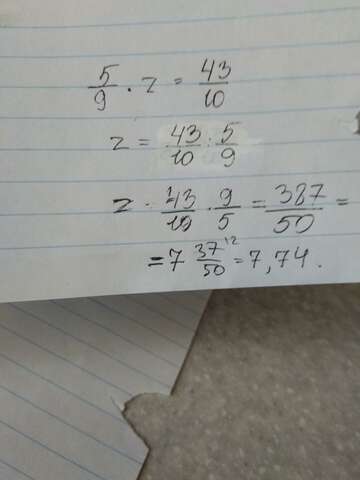 5/9 · z = 43/10
z = 43/10 : 5/9
z = 43/10 · 9/5 = 387/50 =
= 7 37/50 ^12 = 7,74.